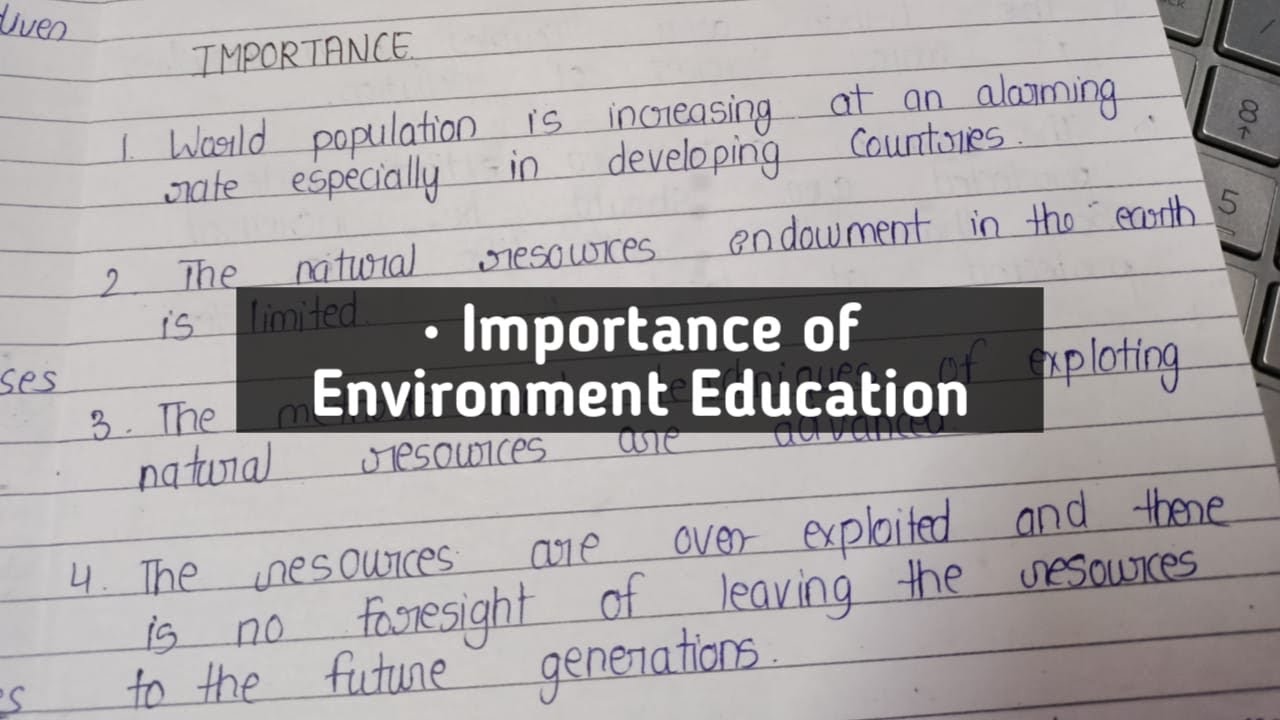 IMPORTANCE.
1. World population is increasing at an alarming
rate especially in developing countries.
2 The natural resources endowment in the earth
is limited.
• Importance of
Environment Education
3. The methods and techniques of exploting
natural resources are advanced.
4. The resources are over exploited and there
is no foresight of leaving the resources
to the future generations.
ses
es
8
5